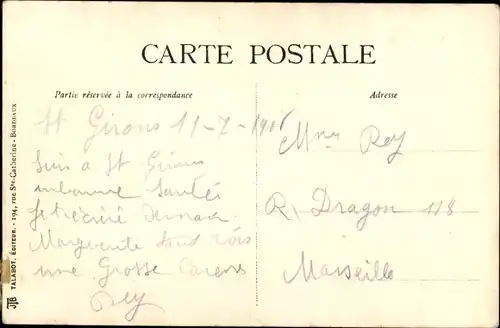 CARTE POSTALE
Partie réservée à la correspondance
Adresse
St Girons 11-7-190
Suis a St Girons
en bonne Santée
Je técriré Demain
Marguerite
une Grosse
Rey
Mme Rey
R. Dragon 118
Marseille
JTB TALABOT, ÉDITEUR. - 194, rue Ste-Catherine - BORDEAUX